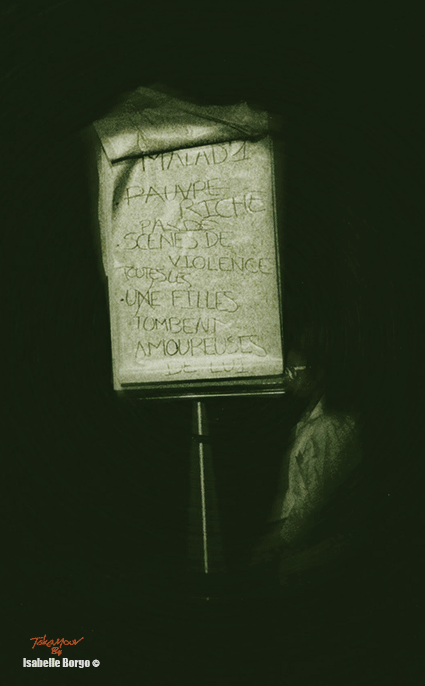 MALAD
. PAUVRE
RICHE
PAS DE
. SCÈNES DE
VIOLENCE
TOUTES LES
. UNE FILLES
. TOMBENT
AMOUREUSES
DE LUI
By
Isabelle Borgo ©